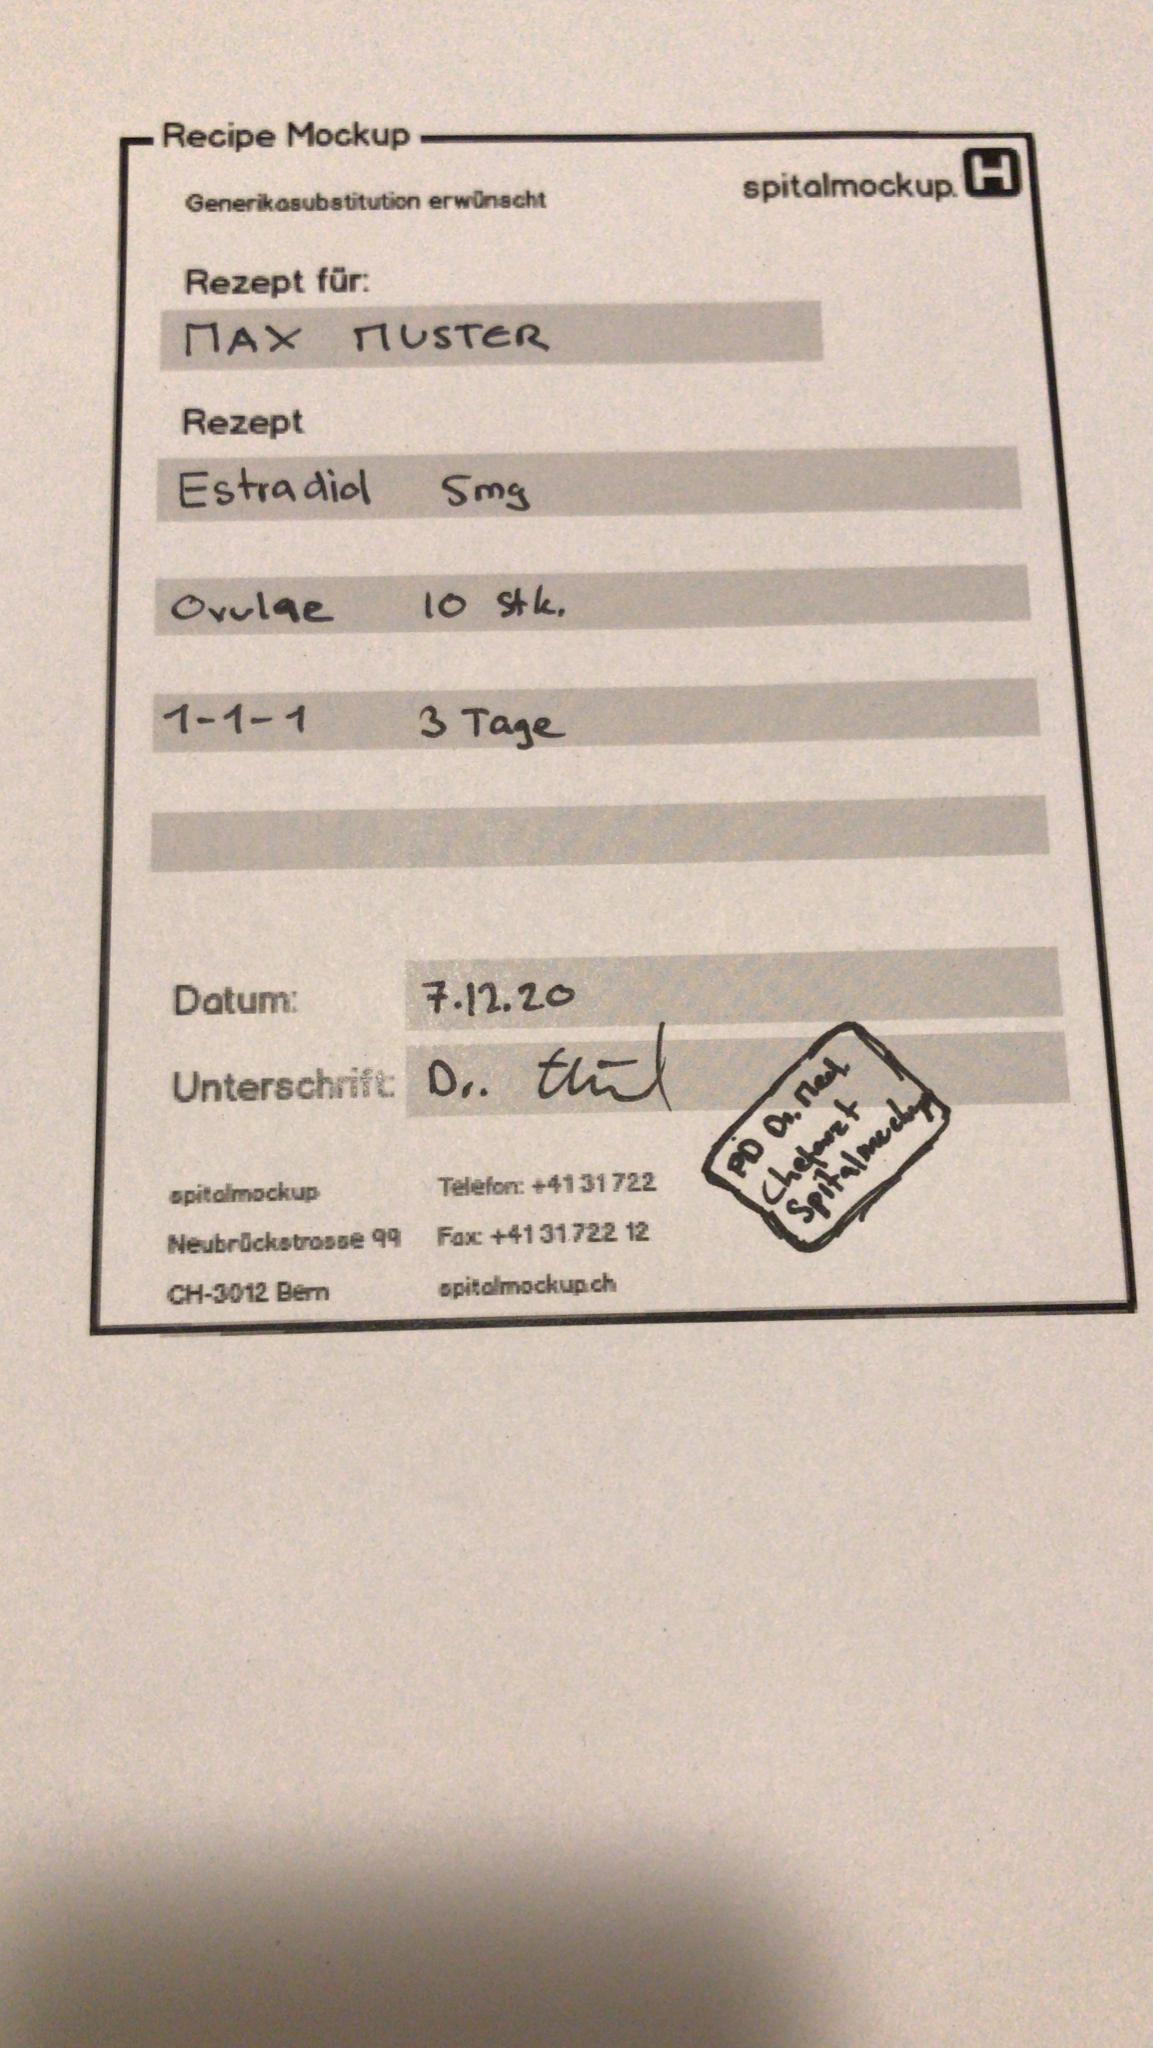 Recipe Mockup
Generikasubstitution erwünscht
spitalmockup. H
Rezept für:
MAX MUSTER
Rezept
Estradiol 5mg
Ovulae 10 stk.
1-1-1 3 Tage
Datum: 7.12.20
Unterschrift: Dr.
PD Dr. Med
Chefarzt
Spitalmockup
spitalmockup Telefon: +41 31 722
Neubrückstrasse 99 Fax: +41 31 722 12
CH-3012 Bern spitalmockup.ch